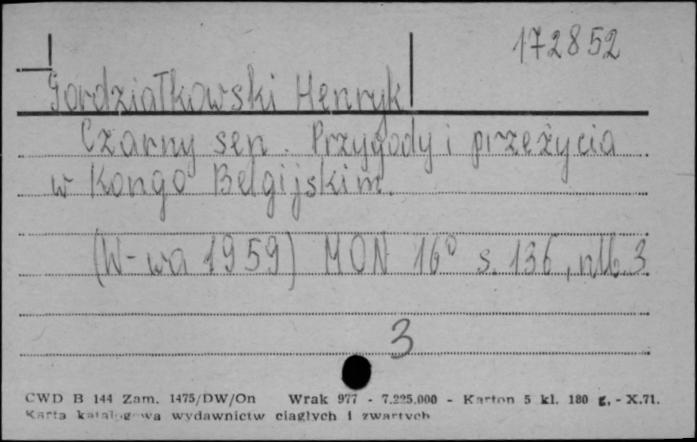 172852
Gordziałkowski Henryk
Czarny sen. Przygody i przeżycia
w Kongo Belgijskim.
(W-wa 1959) MON 16° s. 136, nlb. 3
3
CWD B 144 Zam. 1475/DW/On Wrak 977 - 7.225.000 - Karton 5 kl. 180 g. - X.71.
Karta katalogowa wydawnictw ciągłych i zwartych